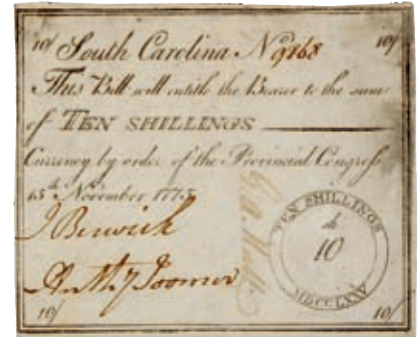 10/ South Carolina No 9868 10/
This Bill will entitle the Bearer to the sum
of TEN SHILLINGS
Currency by order of the Provincial Congress
15th November 1775
J Berwick
Anthy Toomer
TEN SHILLINGS
10
MDCCLXXV
10/ 10/